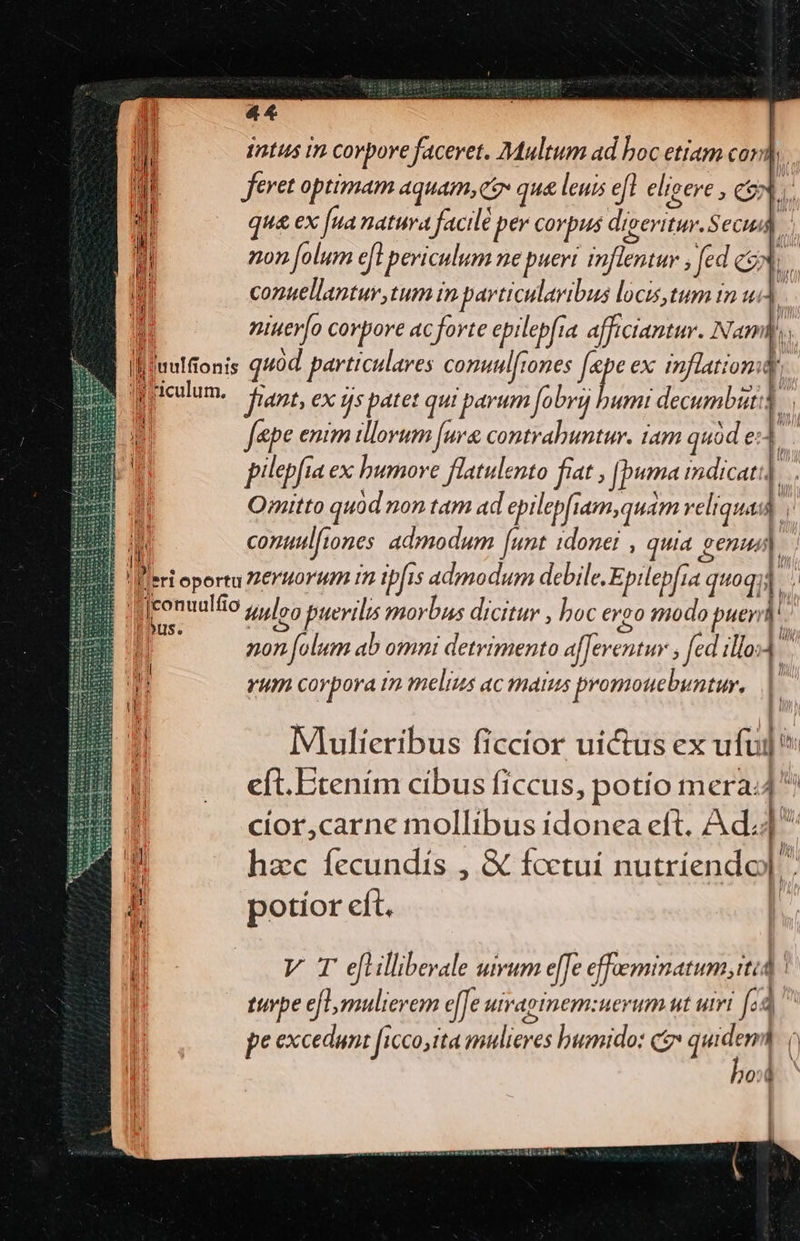 44
intus in corpore faceret. Multum ad hoc etiam con
feret optimam aquam, & quæ leuis est eligere, &
quæ ex sua natura facilè per corpus digeritur. Secus
non solum est periculum ne pueri inflentur, sed &
conuellantur, tum in particularibus locis, tum in u
niuerso corpore ac forte epilepsia afficiantur. Nam
uulsionis quòd particulares conuulsiones sæpe ex inflation
riculum. fiant, ex ijs patet qui parum sobrij humi decumbūt
sæpe enim illorum suræ contrahuntur. iam quòd e
pilepsia ex humore flatulento fiat, spuma indicat
Omitto quòd non tam ad epilepsiam, quàm reliquas
conuulsiones admodum sunt idonei, quia genus
eri oportu neruorum in ipsis admodum debile. Epilepsia quoq;
conuulsio uulgo puerilis morbus dicitur, hoc ergo modo pueri
bus. non solum ab omni detrimento asserentur, sed illo
rum corpora in melius ac maius promouebuntur.
Mulieribus siccior uictus ex usu
est. Etenim cibus siccus, potio mera
cior, carne mollibus idonea est. Ad
hæc fecundis, & fœtui nutriendo
potior est.
V T est illiberale uirum esse effœminatum, ita
turpe est, mulierem esse uiraginem: uerum ut uiri sæ
pe excedunt sicco, ita mulieres humido: & quidem
ho